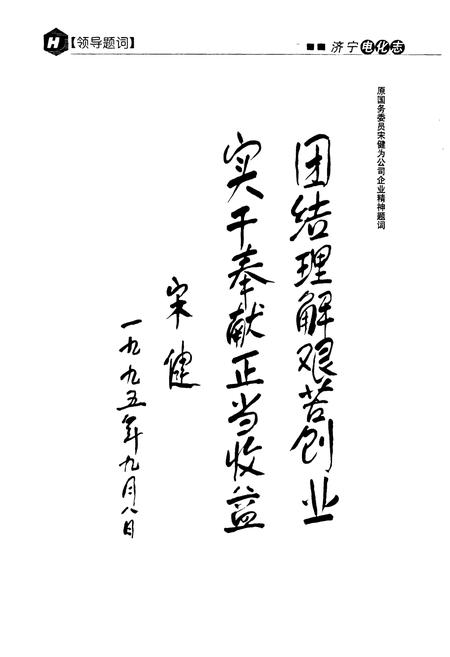 H【领导题词】
■■ 济宁电化志
原国务委员宋健为公司企业精神题词
团结理解艰苦创业
实干奉献正当收益
宋健
一九九五年九月八日